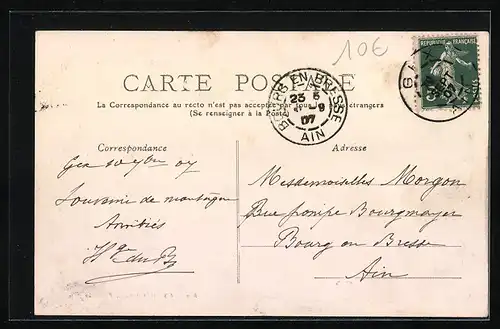 10€
CARTE POSTALE
La Correspondance au recto n'est pas acceptée par tous étrangers
(Se renseigner à la Poste)
BOURG-EN-BRESSE
23
9
07
AIN
REPUBLIQUE FRANÇAISE
Correspondance
Adresse
Gex
07
Souvenir de montagne
Amitiés
Mesdemoiselles Morgon
Rue Bourgmayer
Bourg en Bresse
Ain